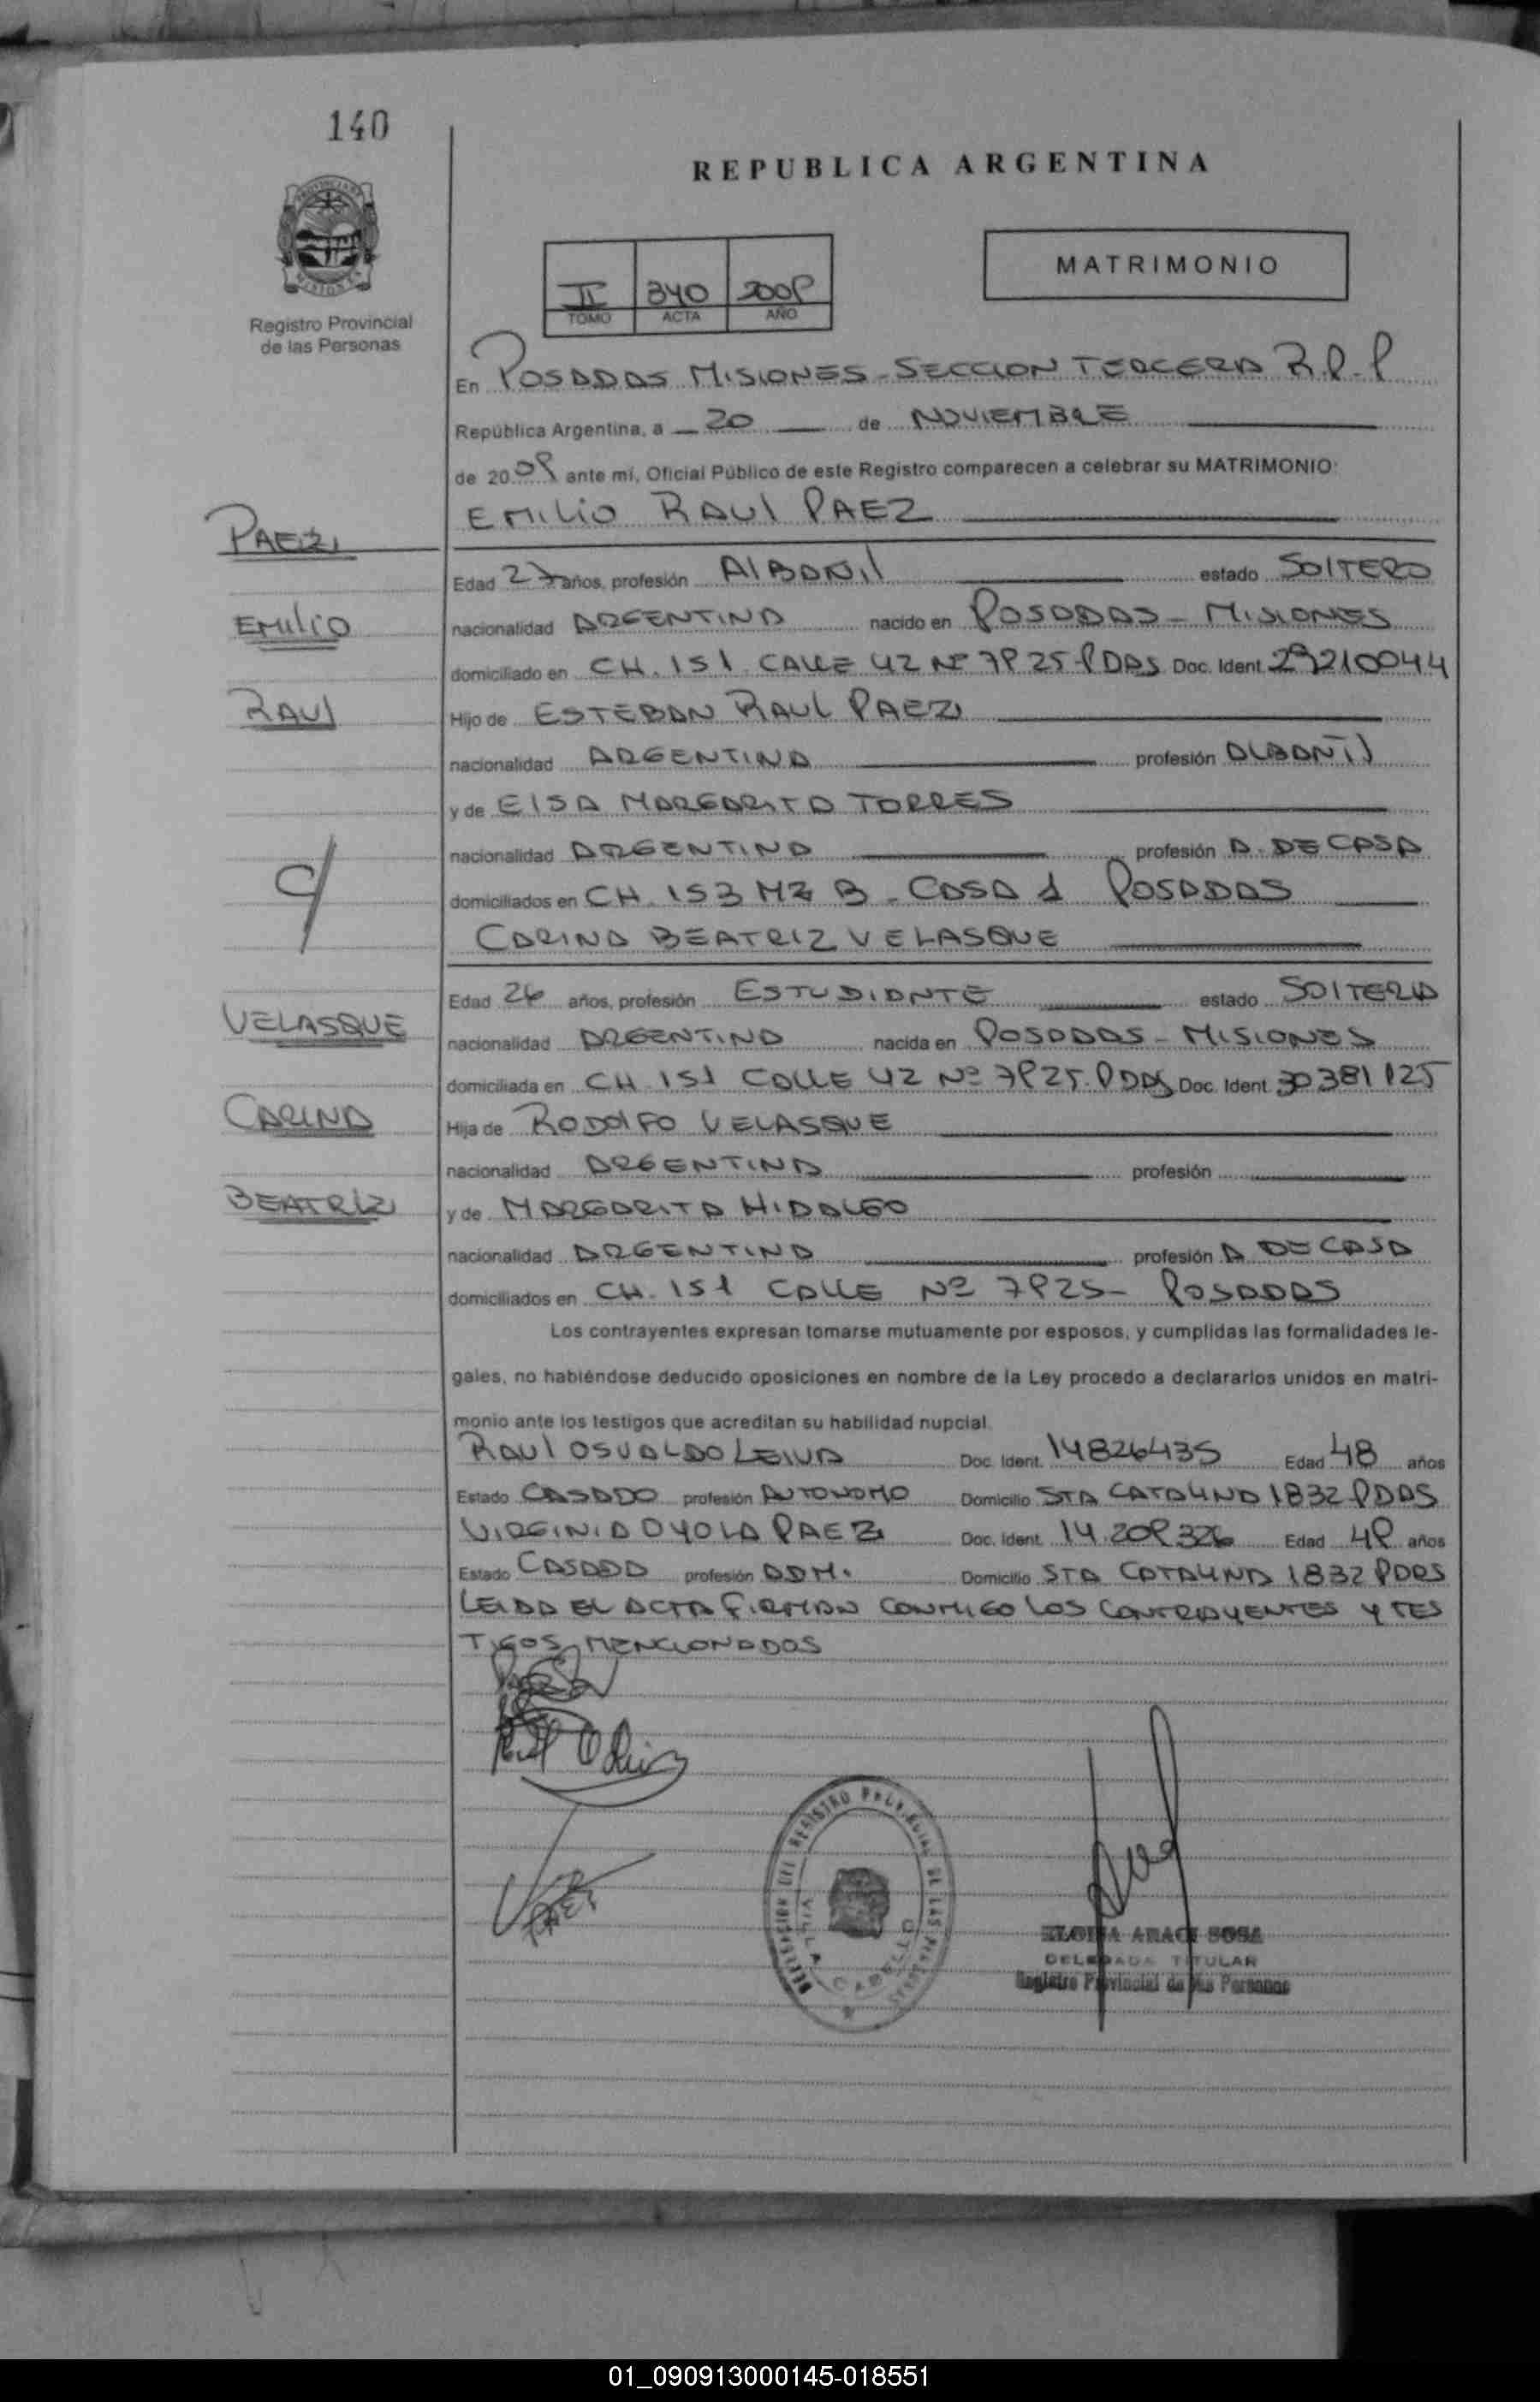 140
REPUBLICA ARGENTINA
MATRIMONIO
II 340 2009
TOMO ACTA AÑO
Registro Provincial
de las Personas
En POSADAS MISIONES - SECCION TERCERA R.P.P
República Argentina, a 20 de NOVIEMBRE
de 2009 ante mí, Oficial Público de este Registro comparecen a celebrar su MATRIMONIO:
EMILIO RAUL PAEZ
PAEZ
Edad 27 años, profesión ALBANIL estado SOLTERO
EMILIO
nacionalidad ARGENTINA nacido en POSADAS - MISIONES
domiciliado en CH. 151 CALLE 42 Nº 7925 - PDAS Doc. Ident. 29210044
RAUL
Hijo de ESTEBAN RAUL PAEZ
nacionalidad ARGENTINA profesión ALBAÑIL
y de ELSA MARGARITA TORRES
nacionalidad ARGENTINA profesión A. DE CASA
domiciliados en CH. 153 MZ B - CASA 1 POSADAS
C/
CARINA BEATRIZ VELASQUE
Edad 26 años, profesión ESTUDIANTE estado SOLTERA
VELASQUE
nacionalidad ARGENTINA nacida en POSADAS - MISIONES
domiciliada en CH. 151 CALLE 42 Nº 7925 - PDAS Doc. Ident. 30381125
CARINA
Hija de RODOLFO VELASQUE
nacionalidad ARGENTINA profesión
BEATRIZ
y de MARGARITA HIDALGO
nacionalidad ARGENTINA profesión A DE CASA
domiciliados en CH. 151 CALLE Nº 7925 - POSADAS
Los contrayentes expresan tomarse mutuamente por esposos, y cumplidas las formalidades le-
gales, no habiéndose deducido oposiciones en nombre de la Ley procedo a declararlos unidos en matri-
monio ante los testigos que acreditan su habilidad nupcial.
RAUL OSVALDO LEIVA Doc. Ident. 14826435 Edad 48 años
Estado CASADO profesión AUTONOMO Domicilio STA CATALINA 1832 PDAS
VIRGINIA OYOLA PAEZ Doc. Ident. 14.209.326 Edad 49 años
Estado CASADA profesión ADM. Domicilio STA CATALINA 1832 PDAS
LEIDA EL ACTA FIRMAN CONMIGO LOS CONTRAYENTES Y TES
TIGOS MENCIONADOS
DELEGACION DEL REGISTRO PROVINCIAL DE LAS PERSONAS
VILLA CABELLO
ARACI SOSA
DELEGADA TITULAR
Registro Provincial de las Personas
01_090913000145-018551